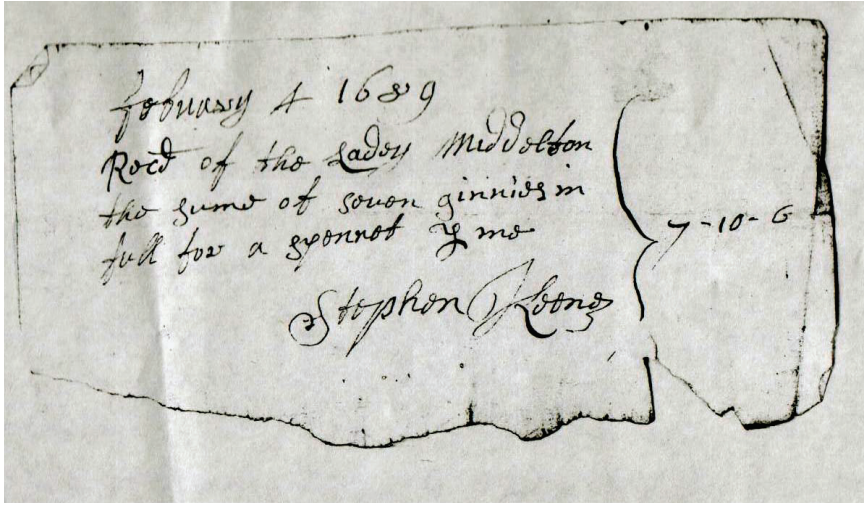 febuary 4 1689
Recd of the Ladey Middelton
the sume of seven ginnies in
full for a spennet p me
Stephen Keene
7-10-6